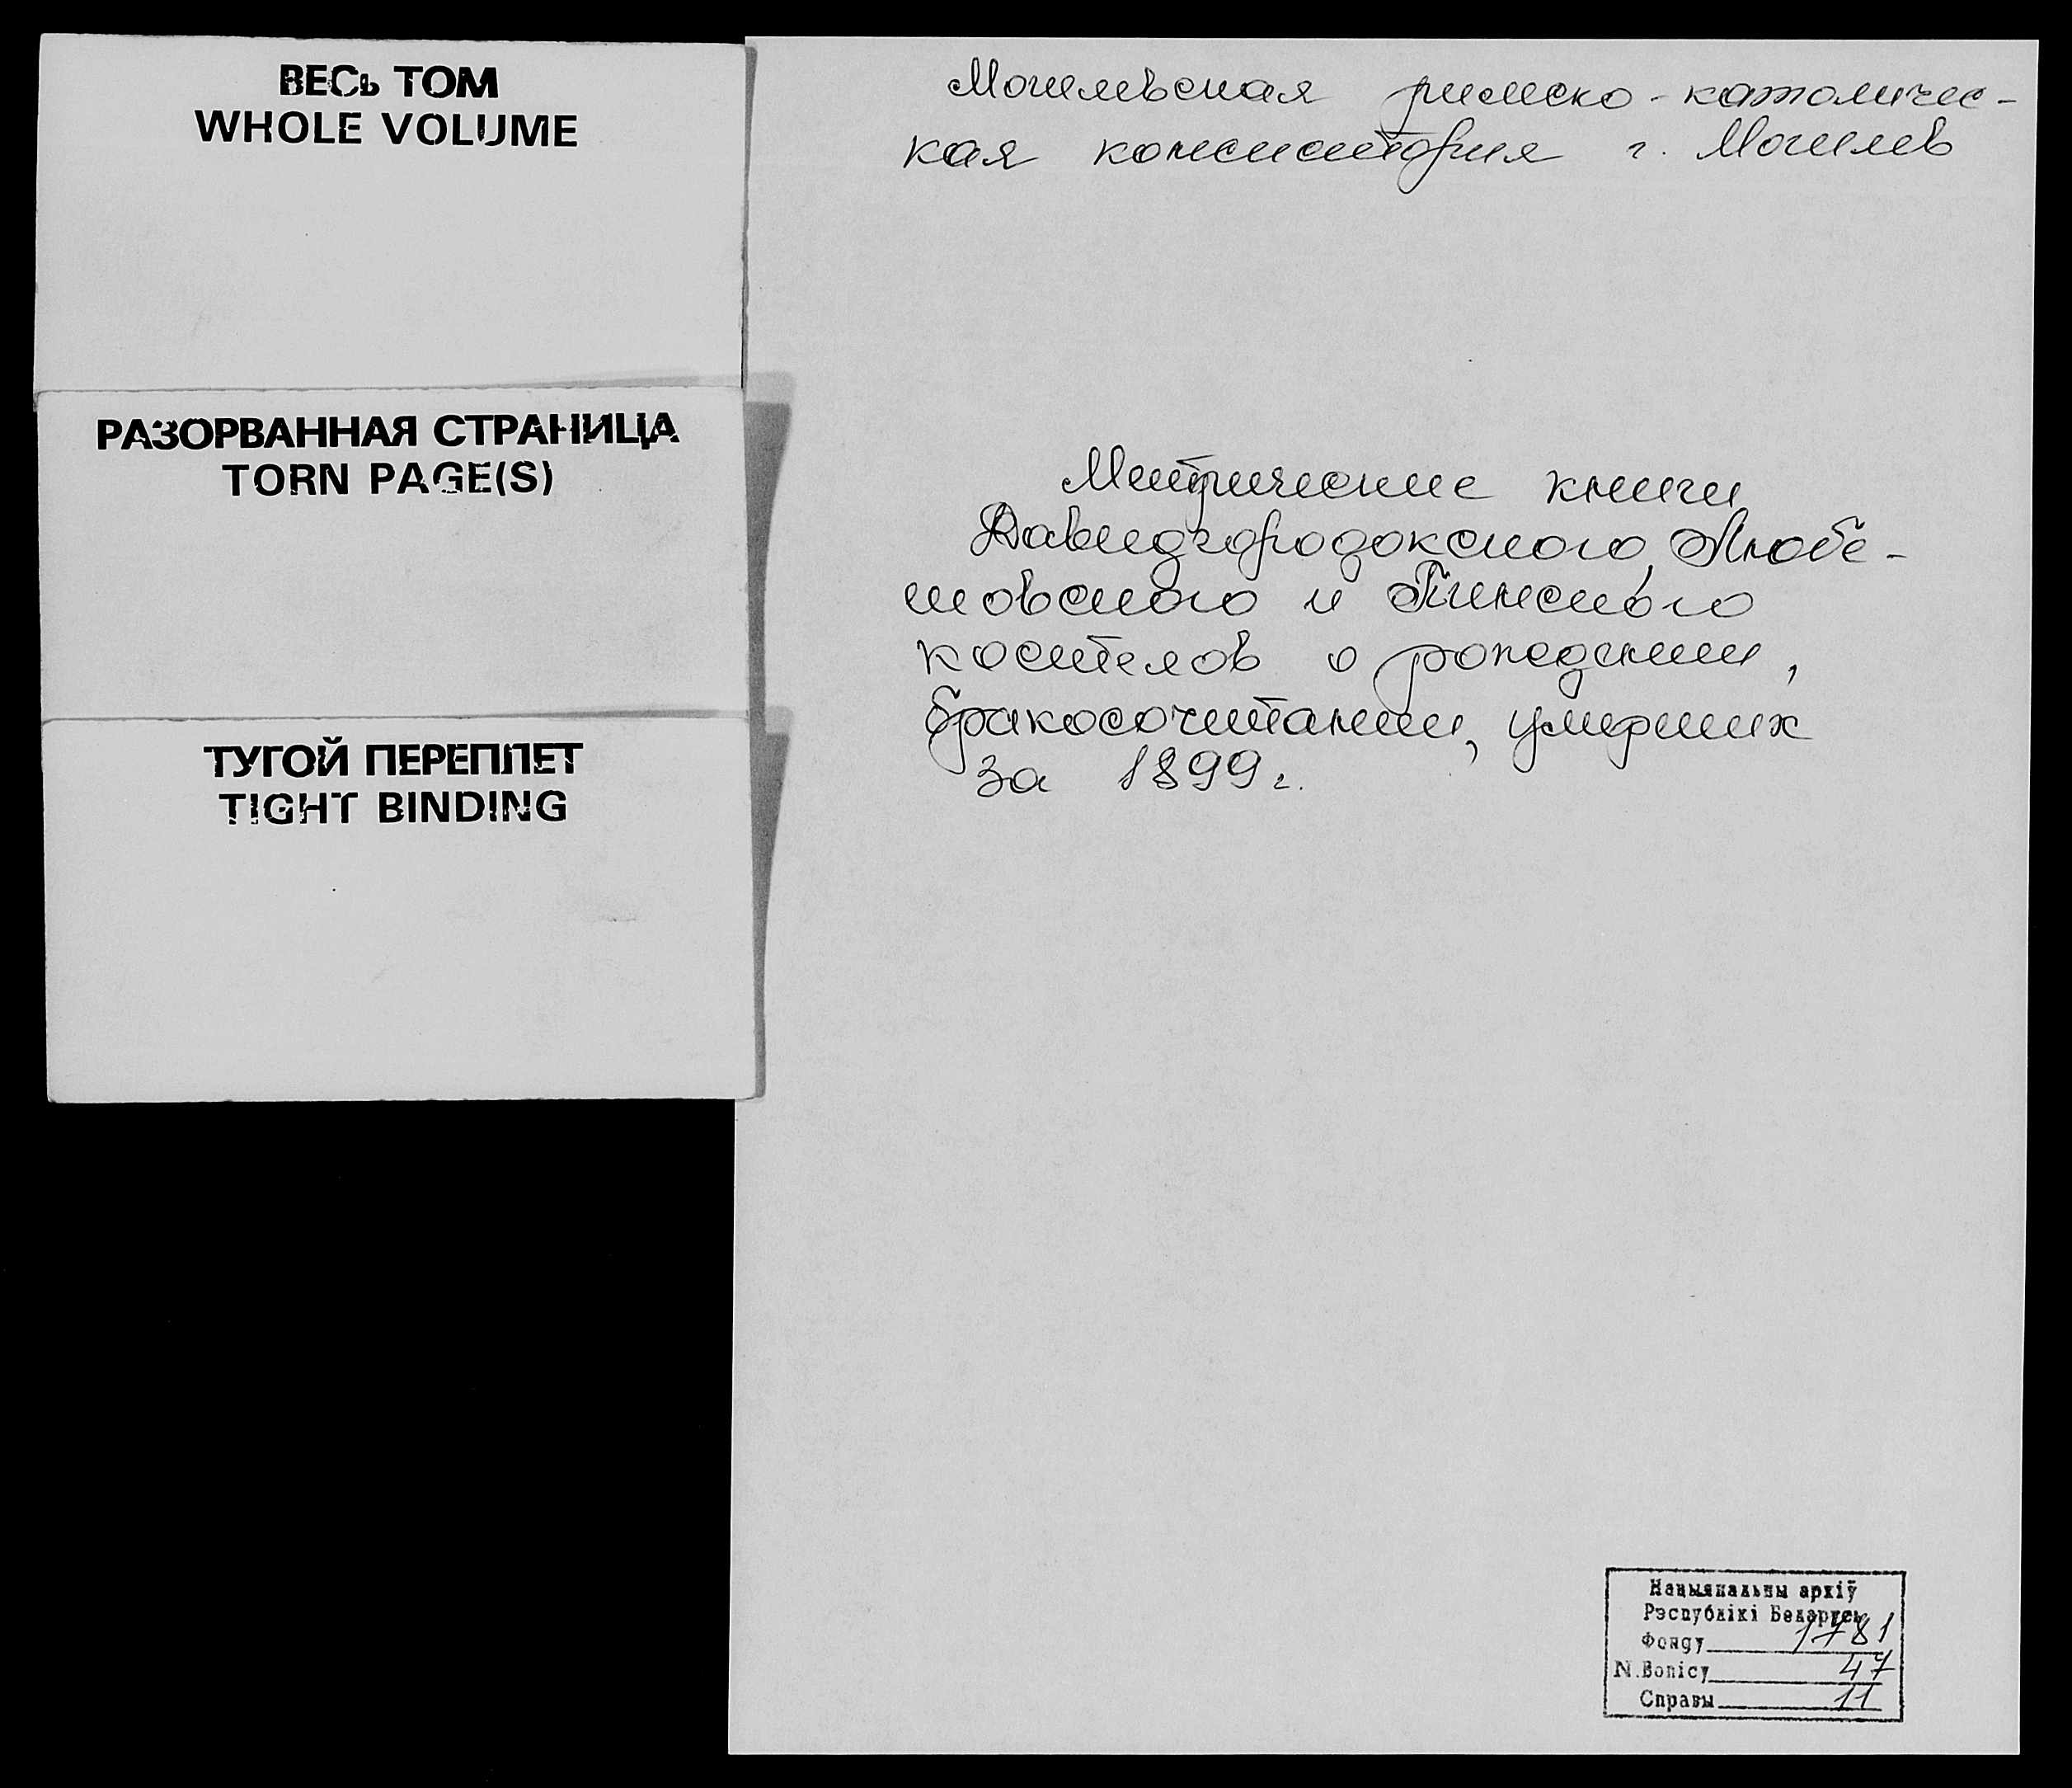 ВЕСЬ ТОМ
WHOLE VOLUME
РАЗОРВАННАЯ СТРАНИЦА
TORN PAGE(S)
ТУГОЙ ПЕРЕПЛЕТ
TIGHT BINDING
Могилевская римско-католичес-
кая консистория г. Могилев
Метрические книги
Давидгородокского, Любе-
шовского и Пинского
костелов о рождении,
бракосочетании, умерших
за 1899 г.
Нацыянальны архіў
Рэспублікі Беларусь
Фонду 1781
N. Вопісу 47
Справы 11